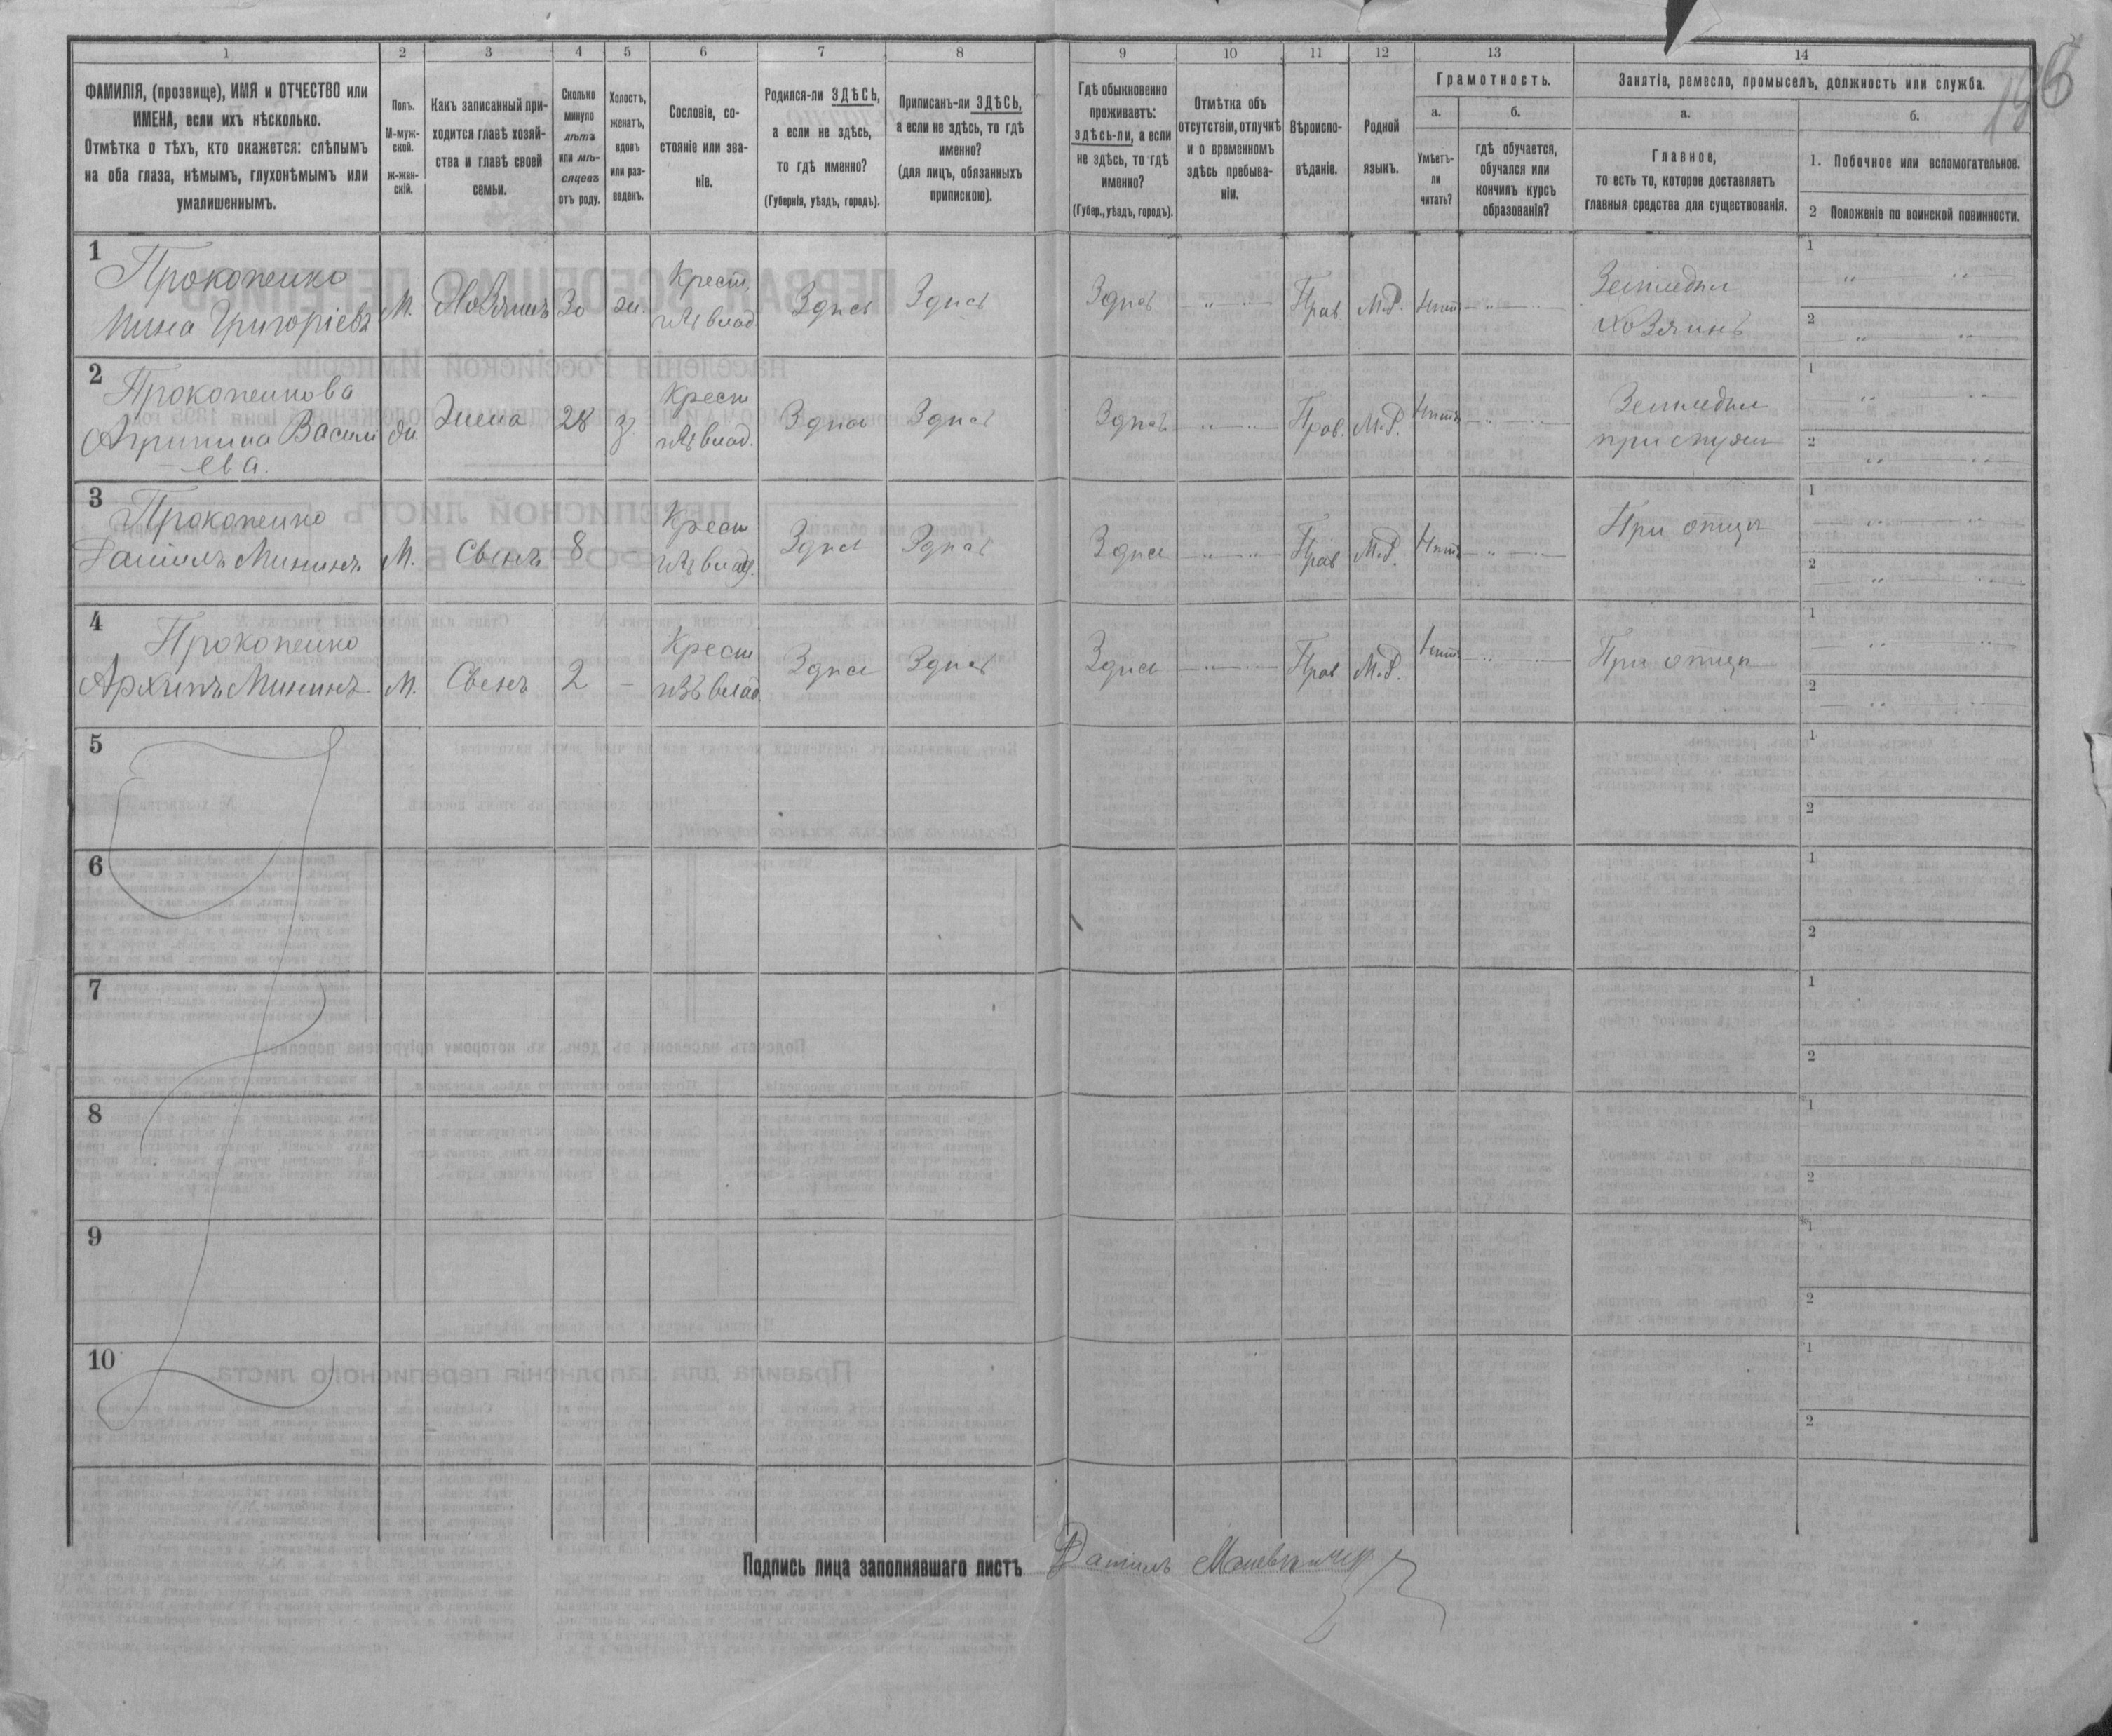 1 2 3 4 5 6 7 8 9 10 11 12 13 14
ФАМИЛІЯ, (прозвище), ИМЯ и ОТЧЕСТВО или
ИМЕНА, если ихъ нѣсколько.
Отмѣтка о тѣхъ, кто окажется: слѣпымъ
на оба глаза, нѣмымъ, глухонѣмымъ или
умалишеннымъ.
Полъ.
М-муж-
ской.
ж-жен-
скій.
Какъ записанный при-
ходится главѣ хозяй-
ства и главѣ своей
семьи.
Сколько
минуло
лѣтъ
или мѣ-
сяцевъ
отъ роду.
Холостъ,
женатъ,
вдовъ
или раз-
веденъ.
Сословіе, со-
стояніе или зва-
ніе.
Родился-ли ЗДѢСЬ,
а если не здѣсь,
то гдѣ именно?
(Губернія, уѣздъ, городъ).
Приписанъ-ли ЗДѢСЬ,
а если не здѣсь, то гдѣ
именно?
(для лицъ, обязанныхъ
припискою).
Гдѣ обыкновенно
проживаетъ:
здѣсь-ли, а если
не здѣсь, то гдѣ
именно?
(Губер., уѣздъ, городъ).
Отмѣтка объ
отсутствіи, отлучкѣ
и о временномъ
здѣсь пребыва-
ніи.
Вѣроиспо-
вѣданіе.
Родной
языкъ.
Грамотность.
а. б.
Умѣетъ-
ли
читать?
гдѣ обучается,
обучался или
кончилъ курсъ
образованія?
Занятія, ремесло, промыселъ, должность или служба.
а. б.
Главное,
то есть то, которое доставляетъ
главныя средства для существованія.
1. Побочное или вспомогательное.
2 Положеніе по воинской повинности.
1 Прокопенко Крест. Земледѣл 1
Мина Григоріевъ М. Хозяинъ 30 ж. изъ влад. Здѣсь Здѣсь Здѣсь Прав. М.Р. Нѣтъ хозяинъ 2
2 Прокопенкова Крест. Земледѣл 1
Агрипина Василі ж. Жена 28 з. изъ влад. Здѣсь Здѣсь Здѣсь Прав. М.Р. Нѣтъ при мужѣ 2
ева.
3 Прокопенко Крест. При отцѣ 1
Даніилъ Мининъ М. Сынъ 8 – изъ влад. Здѣсь Здѣсь Здѣсь Прав М.Р. Нѣтъ 2
4 Прокопенко Крест. При отцѣ 1
Архипъ Мининъ М. Сынъ 2 – изъ влад. Здѣсь Здѣсь Здѣсь Прав М.Р. Нѣтъ 2
5 1
2
6 1
2
7 1
2
8 1
2
9 1
2
10 1
2
Подпись лица заполнявшаго листъ Даніилъ